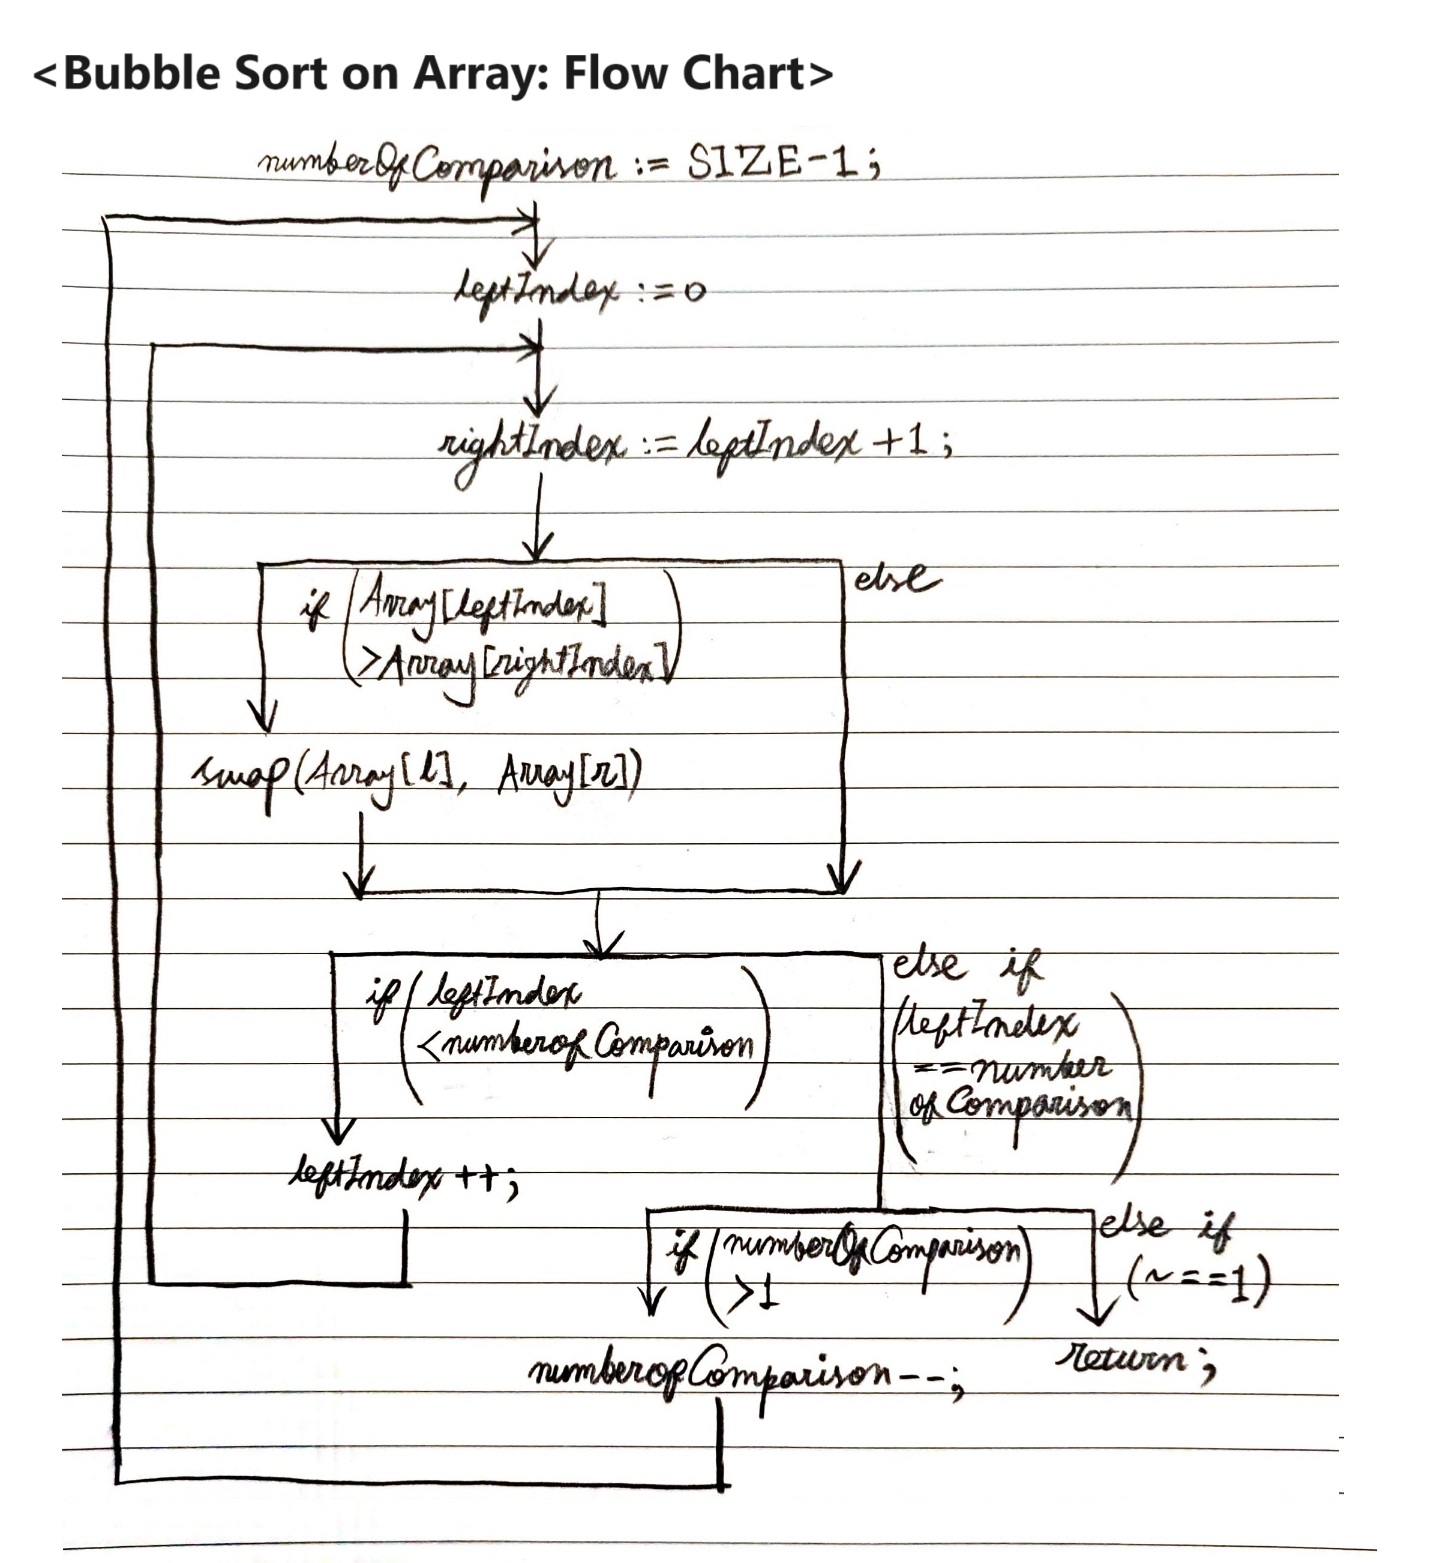 <Bubble Sort on Array: Flow Chart>
numberOfComparison := SIZE-1;
leftIndex :=0
rightIndex := leftIndex +1 ;
if (Array[leftIndex]
>Array[rightIndex])
else
swap(Array[l], Array[r])
if (leftIndex
<numberofComparison)
else if
(leftIndex
==number
ofComparison)
leftIndex ++;
if (numberOfComparison
>1)
else if
(~==1)
numberofComparison--;
return;